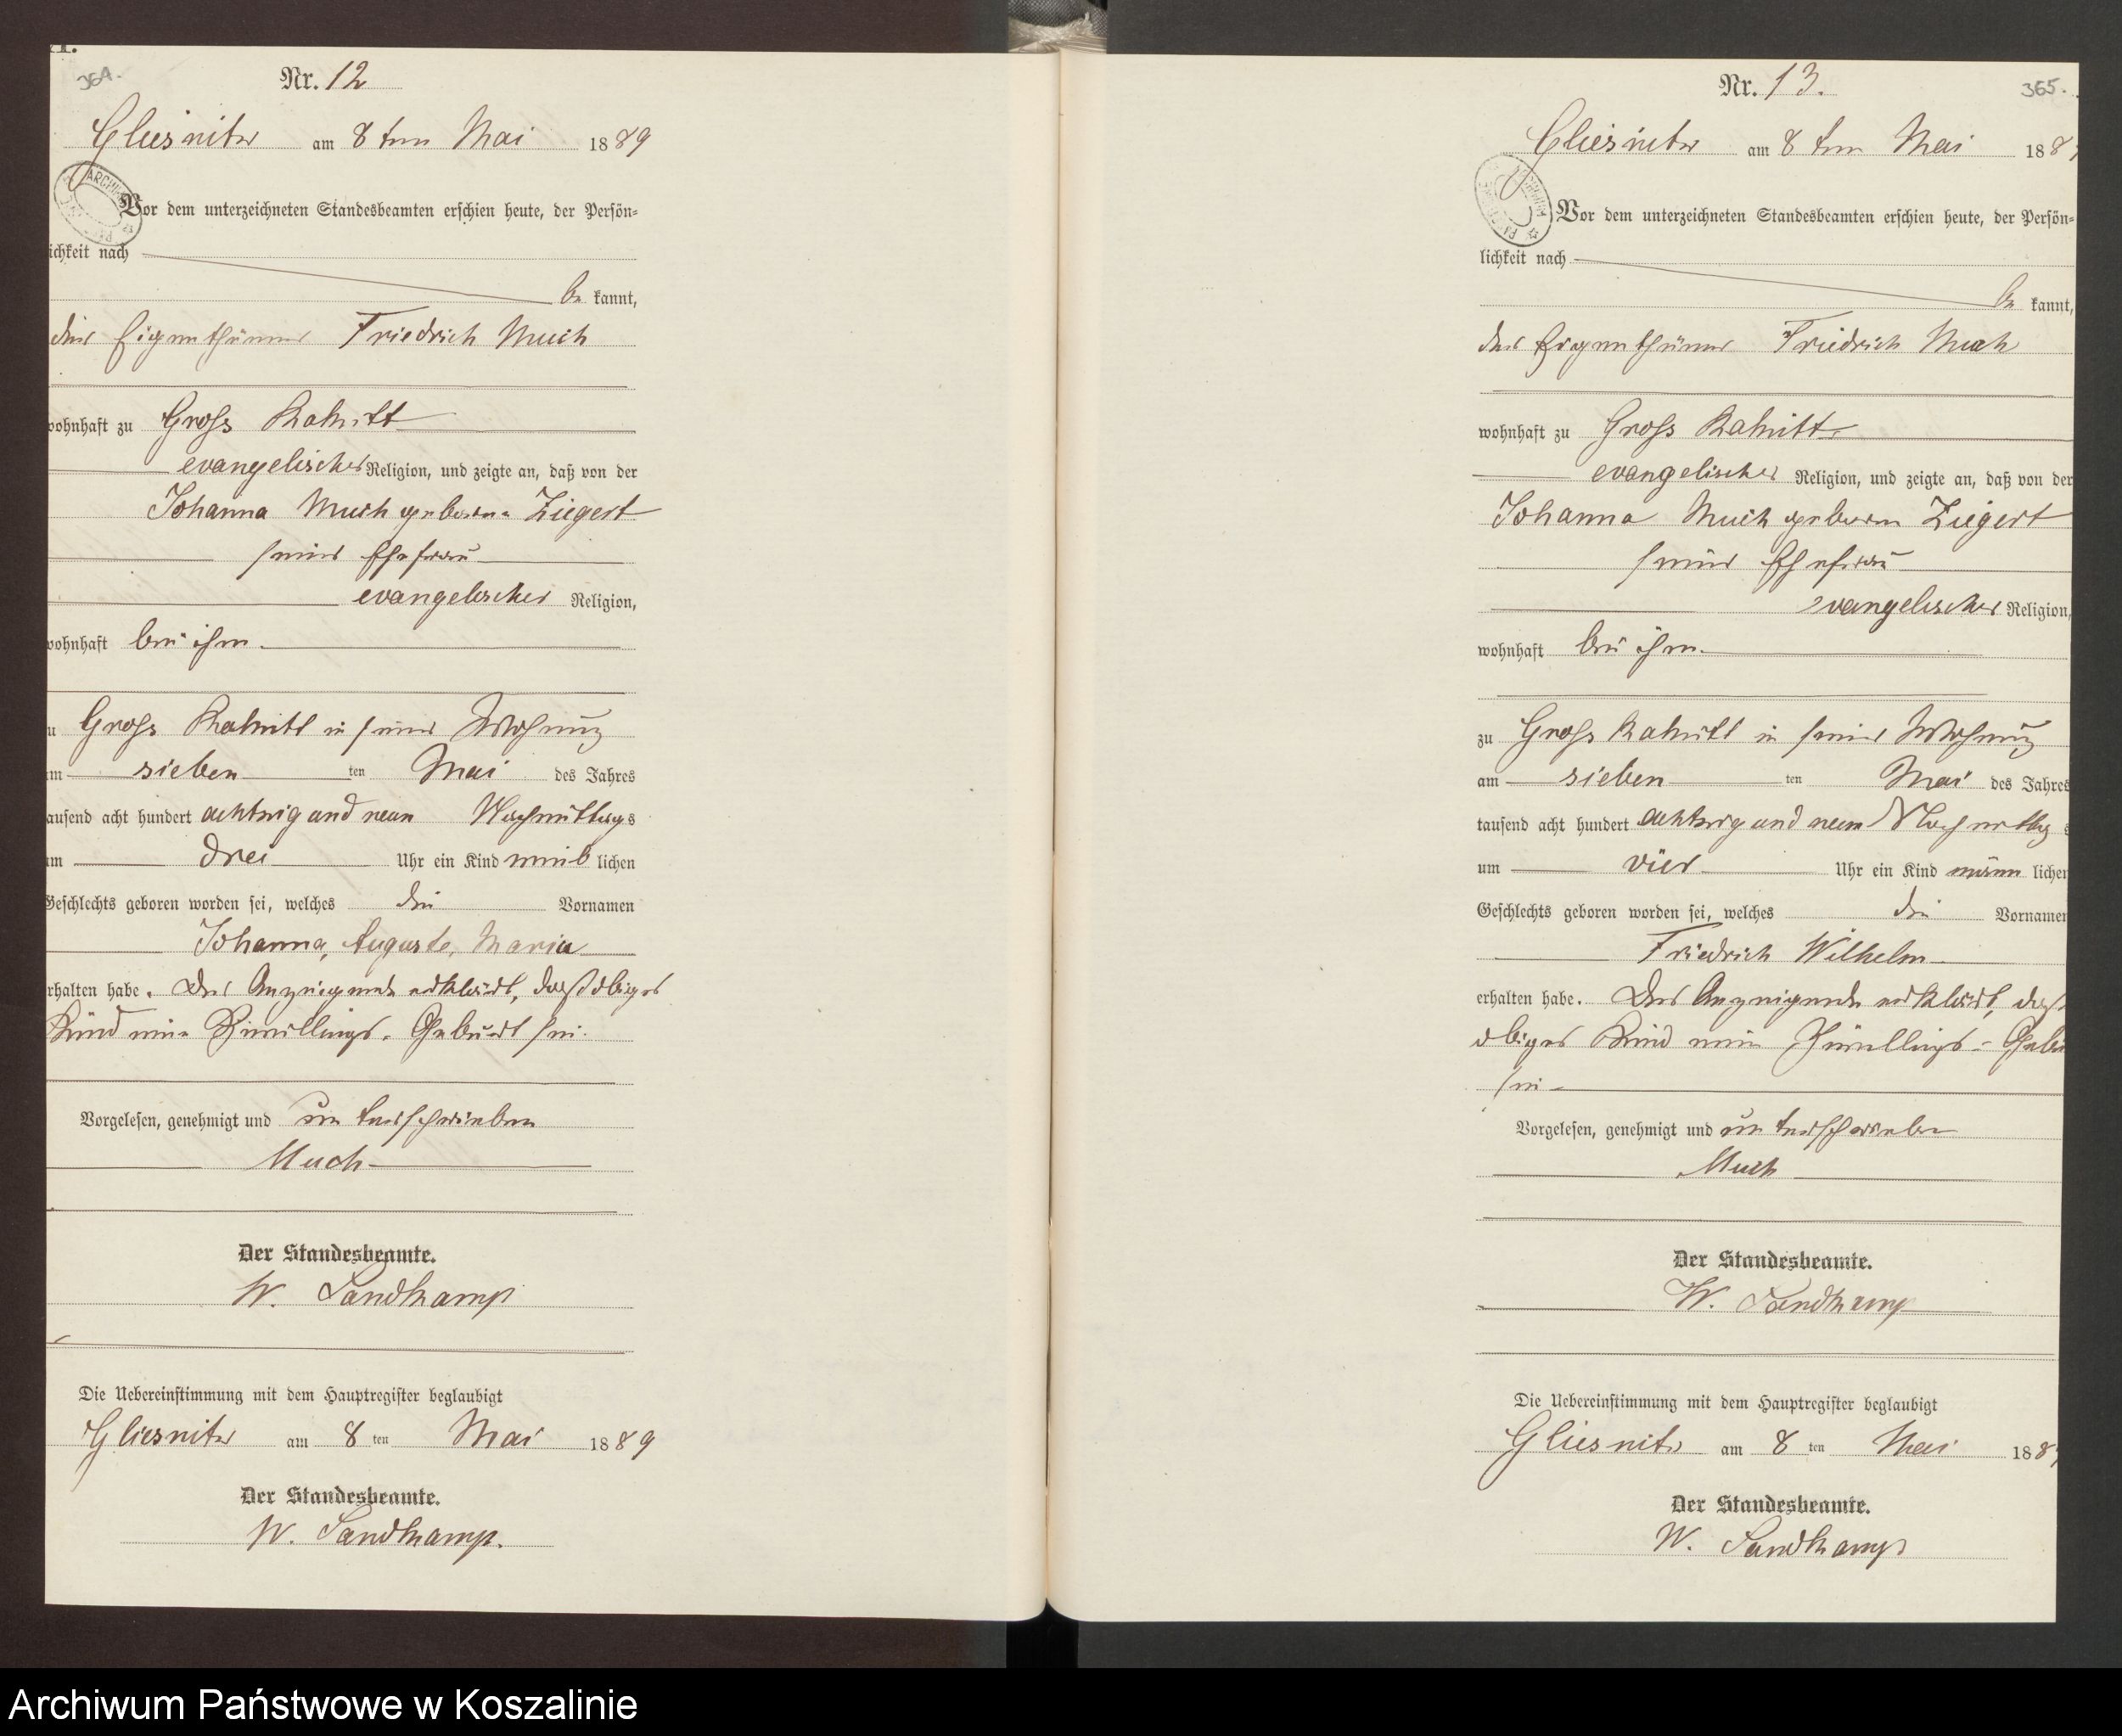 364.
Nr. 12
Gliesnitz am 8ten Mai 1889
Vor dem unterzeichneten Standesbeamten erschien heute, der Persön=
ichkeit nach
be kannt,
der Eigenthümer Friedrich Much
wohnhaft zu Gross Rakitt
evangelischer Religion, und zeigte an, daß von der
Johanna Much geborene Ziegert
seiner Ehefrau
evangelischer Religion,
wohnhaft bei ihm.
u Gross Rakitt in seiner Wohnung
am sieben ten Mai des Jahres
tausend acht hundert achtzig und neun Nachmittags
um drei Uhr ein Kind weib lichen
Geschlechts geboren worden sei, welches die Vornamen
Johanna, Auguste, Maria
erhalten habe. Der Anzeigende erklärt, daß obiges
Kind eine Zwillings-Geburt sei.
Vorgelesen, genehmigt und unterschrieben
Much
Der Standesbeamte.
W. Sandkamp
Die Uebereinstimmung mit dem Hauptregister beglaubigt
Gliesnitz am 8 ten Mai 1889
Der Standesbeamte.
W. Sandkamp.
Nr. 13.
365.
Gliesnitz am 8ten Mai 188
Vor dem unterzeichneten Standesbeamten erschien heute, der Persön=
lichkeit nach
be kannt,
der Eigenthümer Friedrich Much
wohnhaft zu Gross Rakitt
evangelischer Religion, und zeigte an, daß von der
Johanna Much geborene Ziegert
seiner Ehefrau
evangelischer Religion,
wohnhaft bei ihm.
zu Gross Rakitt in seiner Wohnung
am sieben ten Mai des Jahres
tausend acht hundert achtzig und neun Nachmittags
um vier Uhr ein Kind männ lichen
Geschlechts geboren worden sei, welches die Vornamen
Friedrich Wilhelm
erhalten habe. Der Anzeigende erklärt, daß
obiges Kind eine Zwillings-Gebu
sei
Vorgelesen, genehmigt und unterschrieben
Much
Der Standesbeamte.
W. Sandkamp
Die Uebereinstimmung mit dem Hauptregister beglaubigt
Gliesnitz am 8 ten Mai 188
Der Standesbeamte.
W. Sandkamp
Archiwum Państwowe w Koszalinie